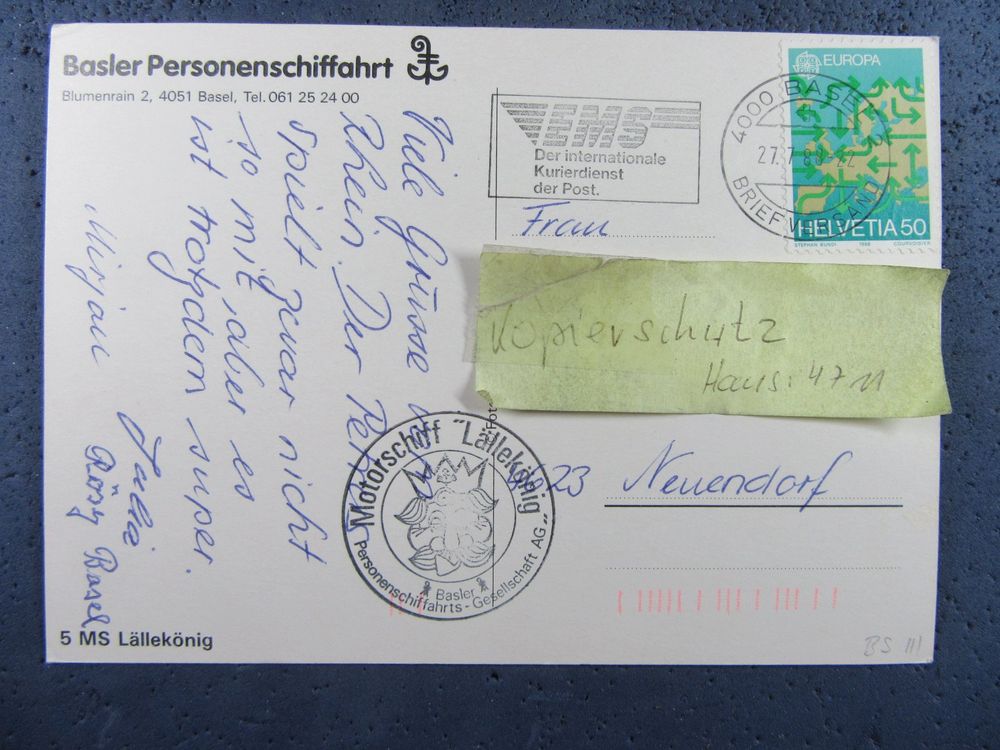 Basler Personenschiffahrt
Blumenrain 2, 4051 Basel, Tel. 061 25 24 00
Viele Grüsse
Rhein. Der Petrus
spielt zwar nicht
so mit aber es
ist trotzdem super.
Mirjam
Rösy Basel
5 MS Lällekönig
EMS
Der internationale
Kurierdienst
der Post.
4000 BASEL 2
27.7.88-22
BRIEFVERSAND
EUROPA
HELVETIA 50
STEPHAN BUNDI 1988 COURVOISIER
Frau
Kopierschutz
Hans: 4711
Neuendorf
Motorschiff "Lällekönig"
Basler
Personenschiffahrts-Gesellschaft AG
BS III